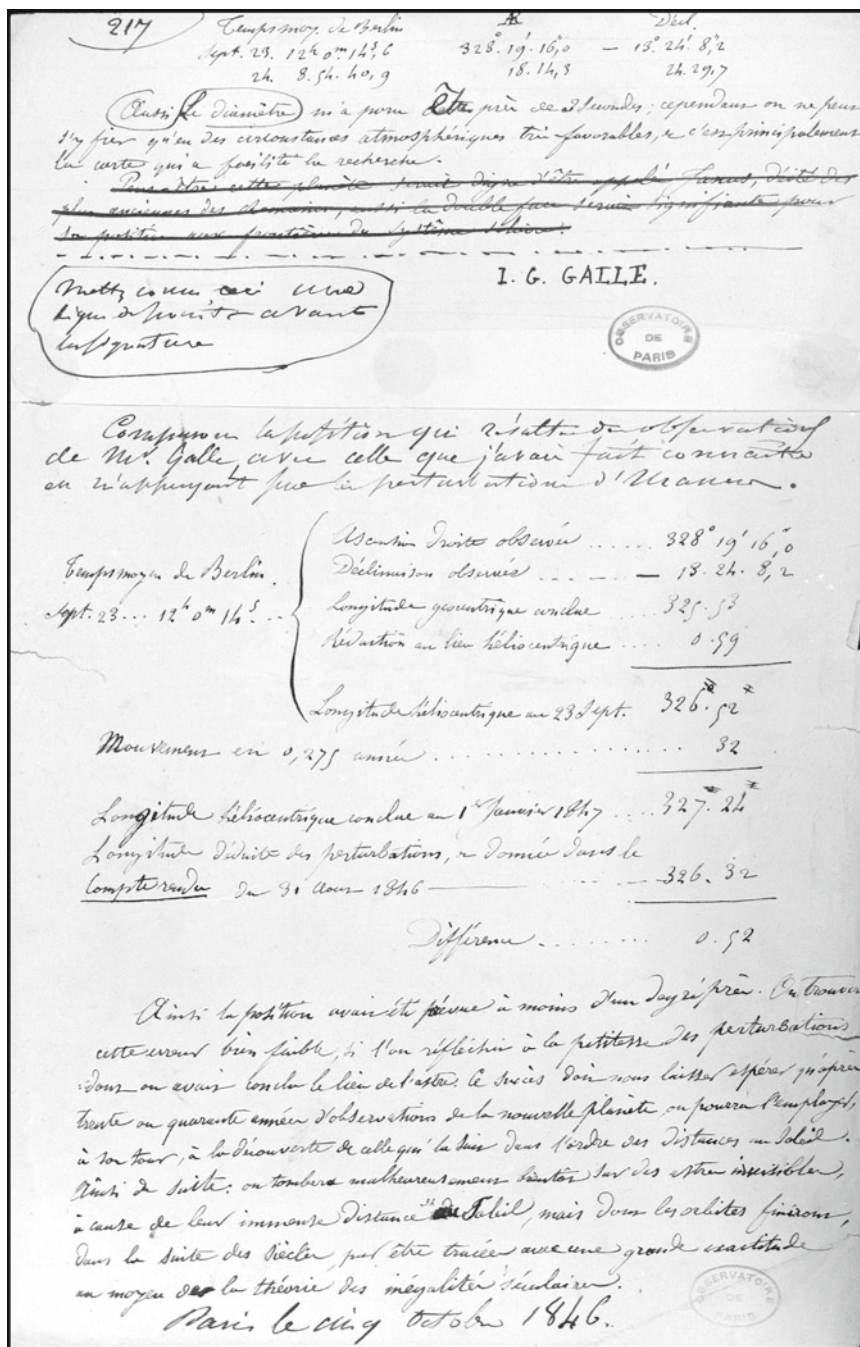 217
Temps moy. de Berlin Æ Décl.
Sept. 23. 12h 0m 14s,6 328°. 19'. 16",0 — 13°. 24'. 8",2
24. 8. 54. 40,9 18. 14,3 24. 29,7
Aussi le diamètre m'a paru être près de 3 secondes; cependant on ne peut
s'y fier qu'en des circonstances atmosphériques très favorables, & c'est principalement
la carte qui a facilité la recherche.
Peut-être cette planète serait digne d'être appelé Janus, déité des
plus anciennes des Romains, aussi la double face serait signifiante pour
sa position aux frontières du système solaire.
I. G. GALLE.
Mettez comme ceci une
ligne de points avant
la signature
OBSERVATOIRE
DE
PARIS
Comparons la position qui résulte des observations
de Mr. Galle, avec celle que j'avais fait connaître
en m'appuyant sur les perturbations d'Uranus.
Temps moyen de Berlin.
Sept. 23... 12h 0m 14s...
Ascension Droite observée ...... 328° 19' 16",0
Déclinaison observée .... — 13. 24. 8,2
Longitude géocentrique conclue ...... 325. 53
Réduction au lieu héliocentrique ...... 0. 59
Longitude héliocentrique au 23 Sept. 326. 52
Mouvement en 0,275 année ........ 32
Longitude héliocentrique conclue au 1er Janvier 1847 .... 327. 24
Longitude déduite des perturbations, & donnée dans le
Compte rendu du 31 Août 1846 — 326. 32
Différence ........ 0. 52
Ainsi la position avait été prévue à moins d'un degré près. On trouvera
cette erreur bien faible, si l'on réfléchit à la petitesse des perturbations
dont on avait conclu le lieu de l'astre. Ce succès doit nous laisser espérer qu'après
trente ou quarante années d'observations de la nouvelle planète, on pourra l'employer,
à son tour, à la découverte de celle qui la suit dans l'ordre des distances au Soleil.
Ainsi de suite: on tombera malheureusement bientôt sur des astres invisibles,
à cause de leur immense distance au Soleil, mais dont les orbites finiront,
dans la suite des siècles, par être tracées avec une grande exactitude
au moyen de la théorie des inégalités séculaires.
Paris le cinq Octobre 1846.
OBSERVATOIRE
DE
PARIS